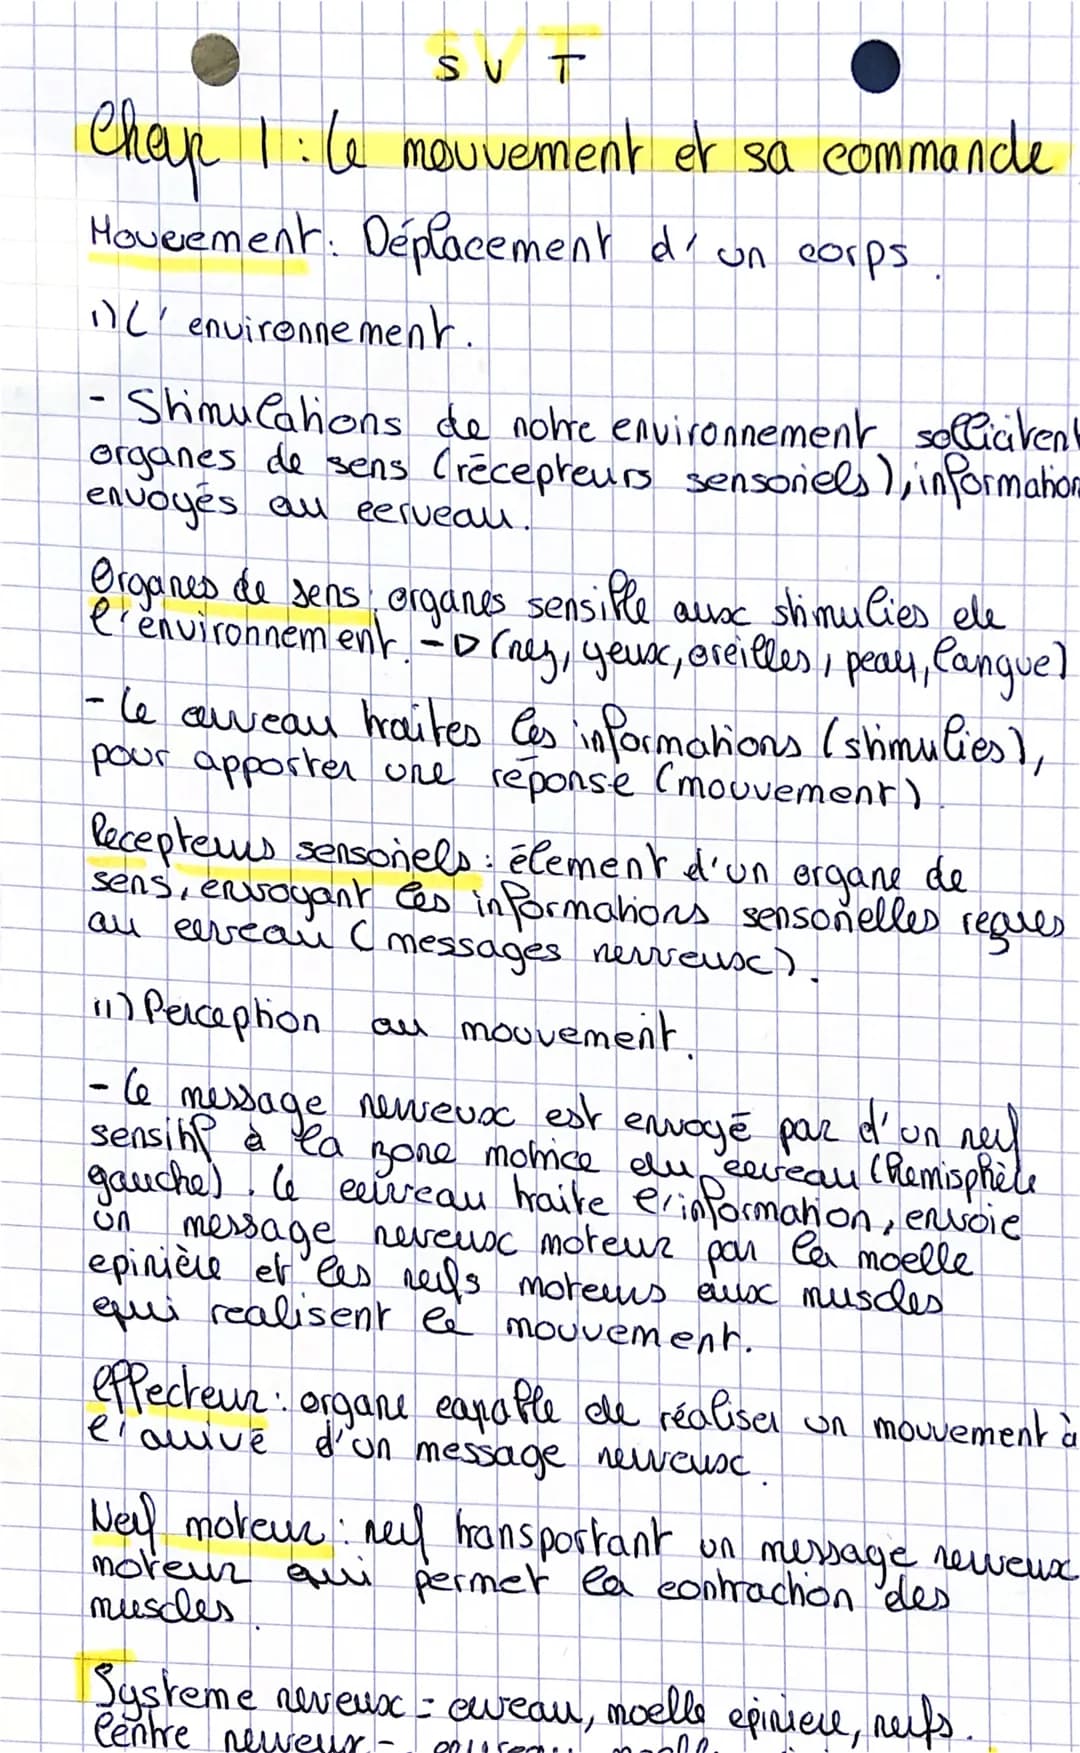 SVT
Chap 1 : Le mouvement et sa commande
Mouvement : Déplacement d'un corps.
1) L'environnement.
- Stimulations de notre environnement sollicitent
organes de sens (récepteurs sensoriels), information
envoyés au cerveau.
Organes de sens : organes sensible aux stimulies de
l'environnement. -> (nez, yeux, oreilles, peau, langue)
- Le cerveau traites les informations (stimulies),
pour apporter une réponse (mouvement)
Recepteurs sensoriels : élement d'un organe de
sens, envoyant les informations sensorielles reçues
au cerveau (messages nerveux).
11) Perception au mouvement.
- Le message nerveux est envoyé par d'un nerf
sensitif à la zone motrice du cerveau (Hemisphère
gauche). Le cerveau traite l'information, envoie
un message nerveux moteur par la moelle
epinière et les nerfs moteurs aux muscles
qui realisent le mouvement.
effecteur : organe capable de réaliser un mouvement à
l'arrivé d'un message nerveux.
Nerf moteur : nerf transportant un message nerveux
moteur qui permet la contraction des
muscles.
Systeme nerveux = cerveau, moelle epiniere, nerfs.
Centre nerveux =